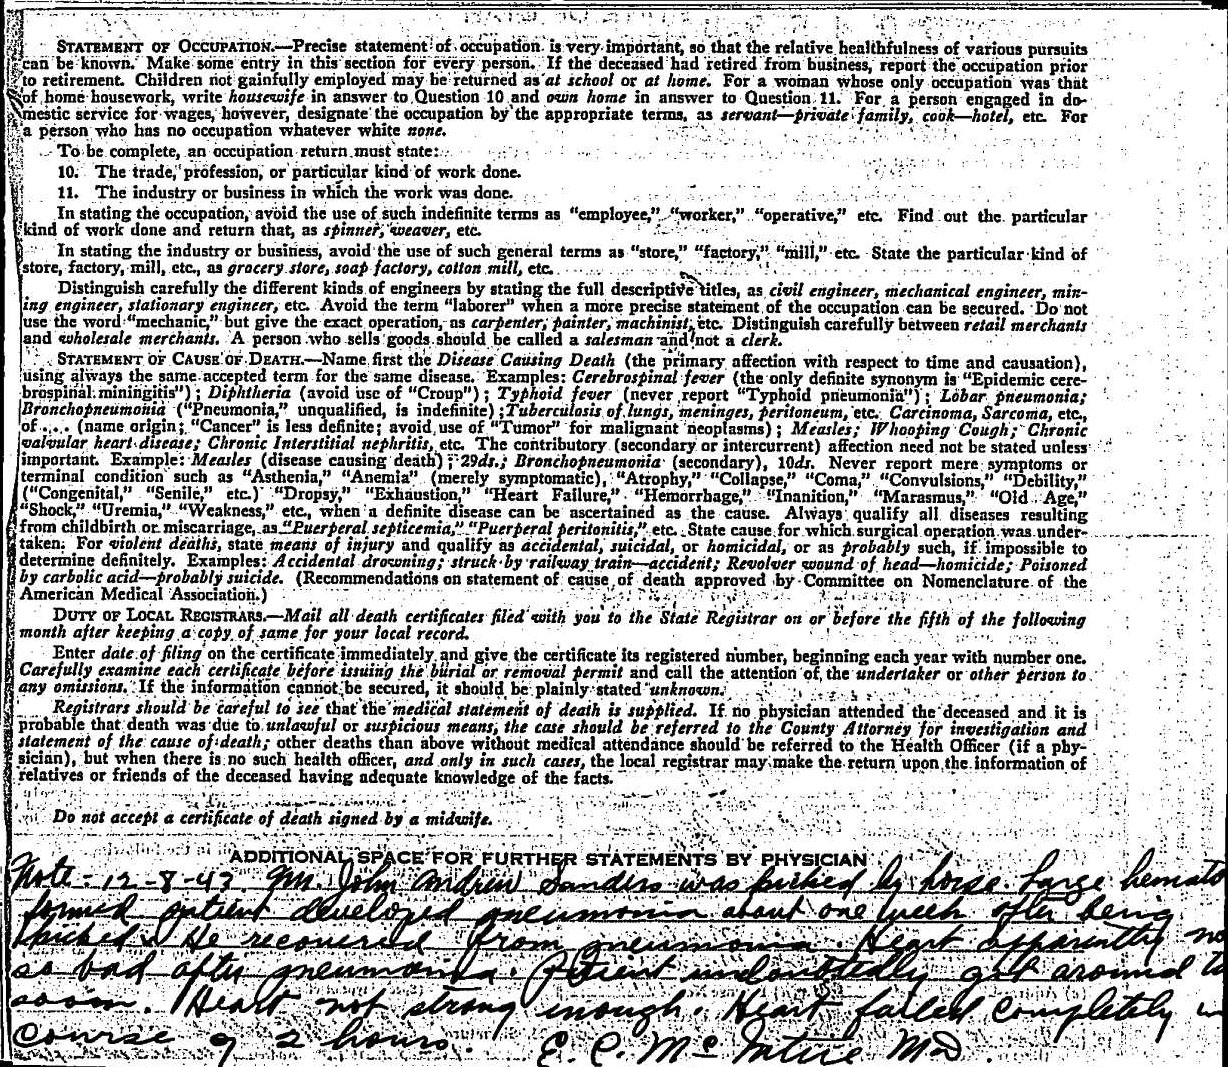 STATEMENT OF OCCUPATION.—Precise statement of occupation is very important, so that the relative healthfulness of various pursuits
can be known. Make some entry in this section for every person. If the deceased had retired from business, report the occupation prior
to retirement. Children not gainfully employed may be returned as at school or at home. For a woman whose only occupation was that
of home housework, write housewife in answer to Question 10 and own home in answer to Question 11. For a person engaged in do-
mestic service for wages, however, designate the occupation by the appropriate terms, as servant—private family, cook—hotel, etc. For
a person who has no occupation whatever white none.
To be complete, an occupation return must state:
10. The trade, profession, or particular kind of work done.
11. The industry or business in which the work was done.
In stating the occupation, avoid the use of such indefinite terms as "employee," "worker," "operative," etc. Find out the particular
kind of work done and return that, as spinner, weaver, etc.
In stating the industry or business, avoid the use of such general terms as "store," "factory," "mill," etc. State the particular kind of
store, factory, mill, etc., as grocery store, soap factory, cotton mill, etc.
Distinguish carefully the different kinds of engineers by stating the full descriptive titles, as civil engineer, mechanical engineer, min-
ing engineer, stationary engineer, etc. Avoid the term "laborer" when a more precise statement of the occupation can be secured. Do not
use the word "mechanic," but give the exact operation, as carpenter, painter, machinist, etc. Distinguish carefully between retail merchants
and wholesale merchants. A person who sells goods should be called a salesman and not a clerk.
STATEMENT OF CAUSE OF DEATH.—Name first the Disease Causing Death (the primary affection with respect to time and causation),
using always the same accepted term for the same disease. Examples: Cerebrospinal fever (the only definite synonym is "Epidemic cere-
brospinal miningitis"); Diphtheria (avoid use of "Croup"); Typhoid fever (never report "Typhoid pneumonia"); Lobar pneumonia;
Bronchopneumonia ("Pneumonia," unqualified, is indefinite); Tuberculosis of lungs, meninges, peritoneum, etc. Carcinoma, Sarcoma, etc.,
of .... (name origin; "Cancer" is less definite; avoid use of "Tumor" for malignant neoplasms); Measles; Whooping Cough; Chronic
valvular heart disease; Chronic Interstitial nephritis, etc. The contributory (secondary or intercurrent) affection need not be stated unless
important. Example: Measles (disease causing death); 29ds.; Bronchopneumonia (secondary), 10ds. Never report mere symptoms or
terminal condition such as "Asthenia," "Anemia" (merely symptomatic), "Atrophy," "Collapse," "Coma," "Convulsions," "Debility,"
("Congenital," "Senile," etc.) "Dropsy," "Exhaustion," "Heart Failure," "Hemorrhage," "Inanition," "Marasmus," "Old Age,"
"Shock," "Uremia," "Weakness," etc., when a definite disease can be ascertained as the cause. Always qualify all diseases resulting
from childbirth or miscarriage, as "Puerperal septicemia," "Puerperal peritonitis," etc. State cause for which surgical operation was under-
taken. For violent deaths, state means of injury and qualify as accidental, suicidal, or homicidal, or as probably such, if impossible to
determine definitely. Examples: Accidental drowning; struck by railway train—accident; Revolver wound of head—homicide; Poisoned
by carbolic acid—probably suicide. (Recommendations on statement of cause of death approved by Committee on Nomenclature of the
American Medical Association.)
DUTY OF LOCAL REGISTRARS.—Mail all death certificates filed with you to the State Registrar on or before the fifth of the following
month after keeping a copy of same for your local record.
Enter date of filing on the certificate immediately and give the certificate its registered number, beginning each year with number one.
Carefully examine each certificate before issuing the burial or removal permit and call the attention of the undertaker or other person to
any omissions. If the information cannot be secured, it should be plainly stated unknown.
Registrars should be careful to see that the medical statement of death is supplied. If no physician attended the deceased and it is
probable that death was due to unlawful or suspicious means, the case should be referred to the County Attorney for investigation and
statement of the cause of death; other deaths than above without medical attendance should be referred to the Health Officer (if a phy-
sician), but when there is no such health officer, and only in such cases, the local registrar may make the return upon the information of
relatives or friends of the deceased having adequate knowledge of the facts.
Do not accept a certificate of death signed by a midwife.
ADDITIONAL SPACE FOR FURTHER STATEMENTS BY PHYSICIAN
Note - 12-8-43 Mr. John Andrew Sanders was kicked by horse. Large hemato
formed patient developed pneumonia about one week after being
kicked. He recovered from pneumonia. Heart apparently no
so bad after pneumonia. Patient undoubtedly got around to
soon. Heart not strong enough. Heart failed completely in
course of 2 hours. E. C. Mc Intire MD.